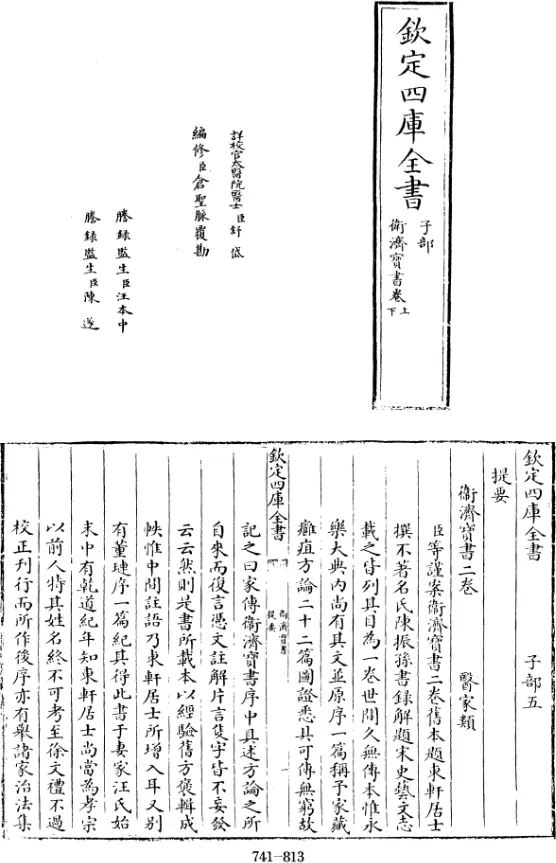 欽定四庫全書
子部
衛濟寶書卷上下
詳校官太醫院醫士臣舒岱
編修臣倉聖脈覆勘
謄錄監生臣汪本中
謄錄監生臣陳遂
欽定四庫全書 子部五
提要
衛濟寶書二卷 醫家類
臣等謹案衛濟寶書二卷舊本題東軒居士
撰不著名氏陳振孫書錄解題宋史藝文志
載之皆列其目為一卷世間久無傳本惟永
樂大典內尚有其文並原序一篇稱予家藏
癰疽方論二十二篇圖證悉具可傳無窮故
欽定四庫全書
衛濟寶書
提要
記之曰家傳衛濟寶書序中具述方論之所
自來而復言憑文註解片言隻字皆不妄發
云云然則是書所載本以經驗舊方裒輯成
帙惟中間註語乃東軒居士所增入耳又別
有董璉序一篇紀其得此書于妻家汪氏始
末中有乾道紀年知東軒居士尚當為孝宗
以前人特其姓名終不可考至徐文禮不過
校正刋行而所作後序亦有舉諸家治法集
741-813